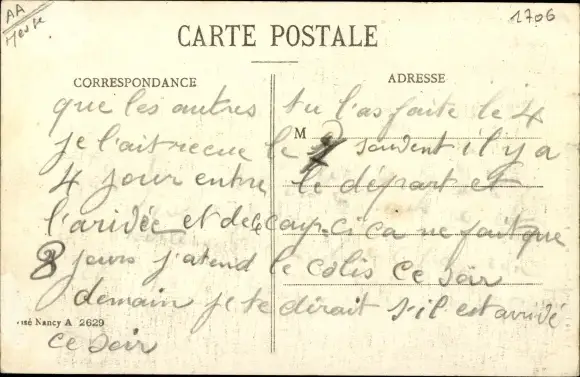 AA
Meuse
1706
CARTE POSTALE
CORRESPONDANCE
ADRESSE
M
que les autres tu l'as faite le 4
je l'ait recue le souvent il y a
4 jour entre le départ et
l'arivée et de ce coup-ci ca ne fait que
3 jours j'atend le colis ce soir
demain je te dirait s'il est arrivé
ce soir
isé Nancy A 2629